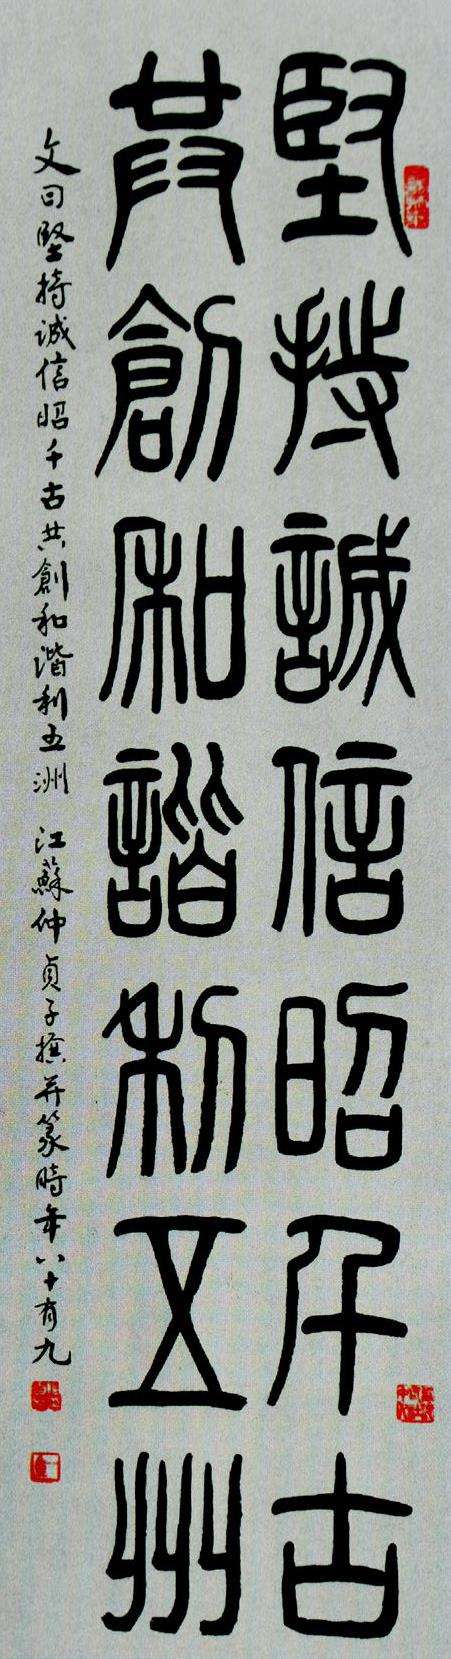 堅持誠信昭千古
共創和諧利五州
文曰堅持誠信昭千古共創和諧利五洲 江蘇仲貞子撰并篆時年八十有九